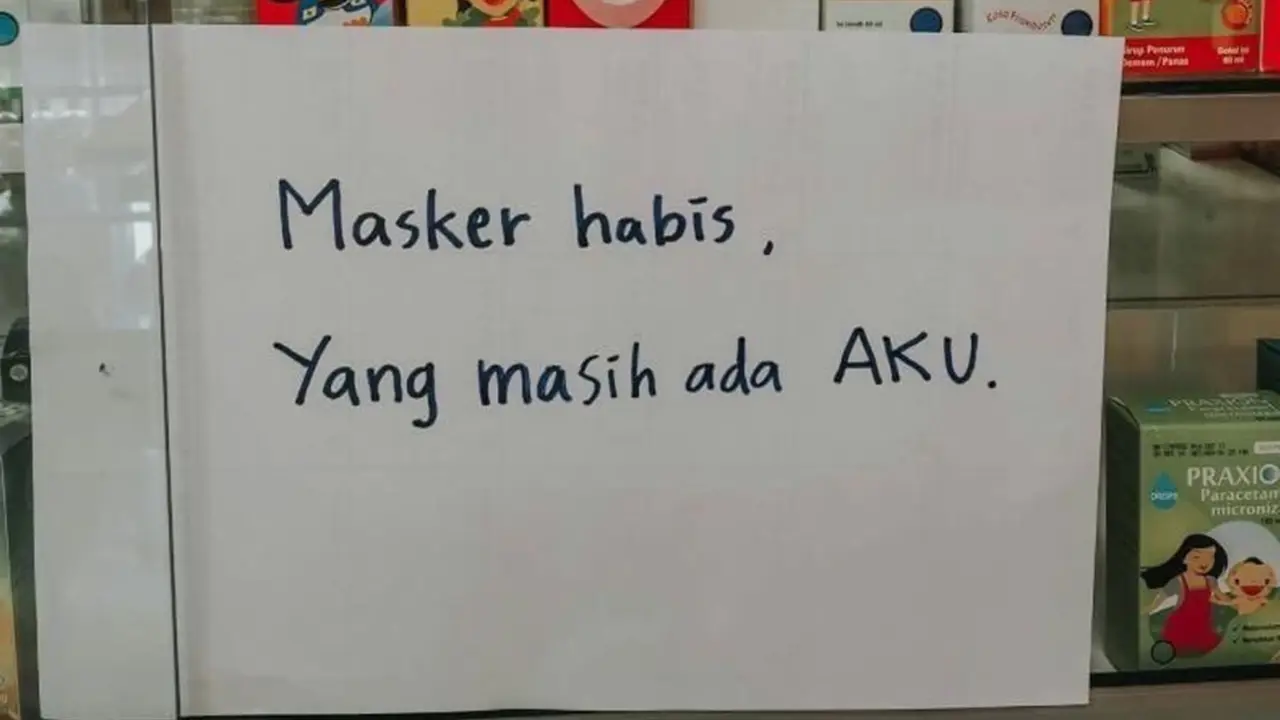 Masker habis,
Yang masih ada AKU.
Sirup Penurun
Demam / Panas
60 ml
PRAXIO
Paracetam
microniz
DROPS